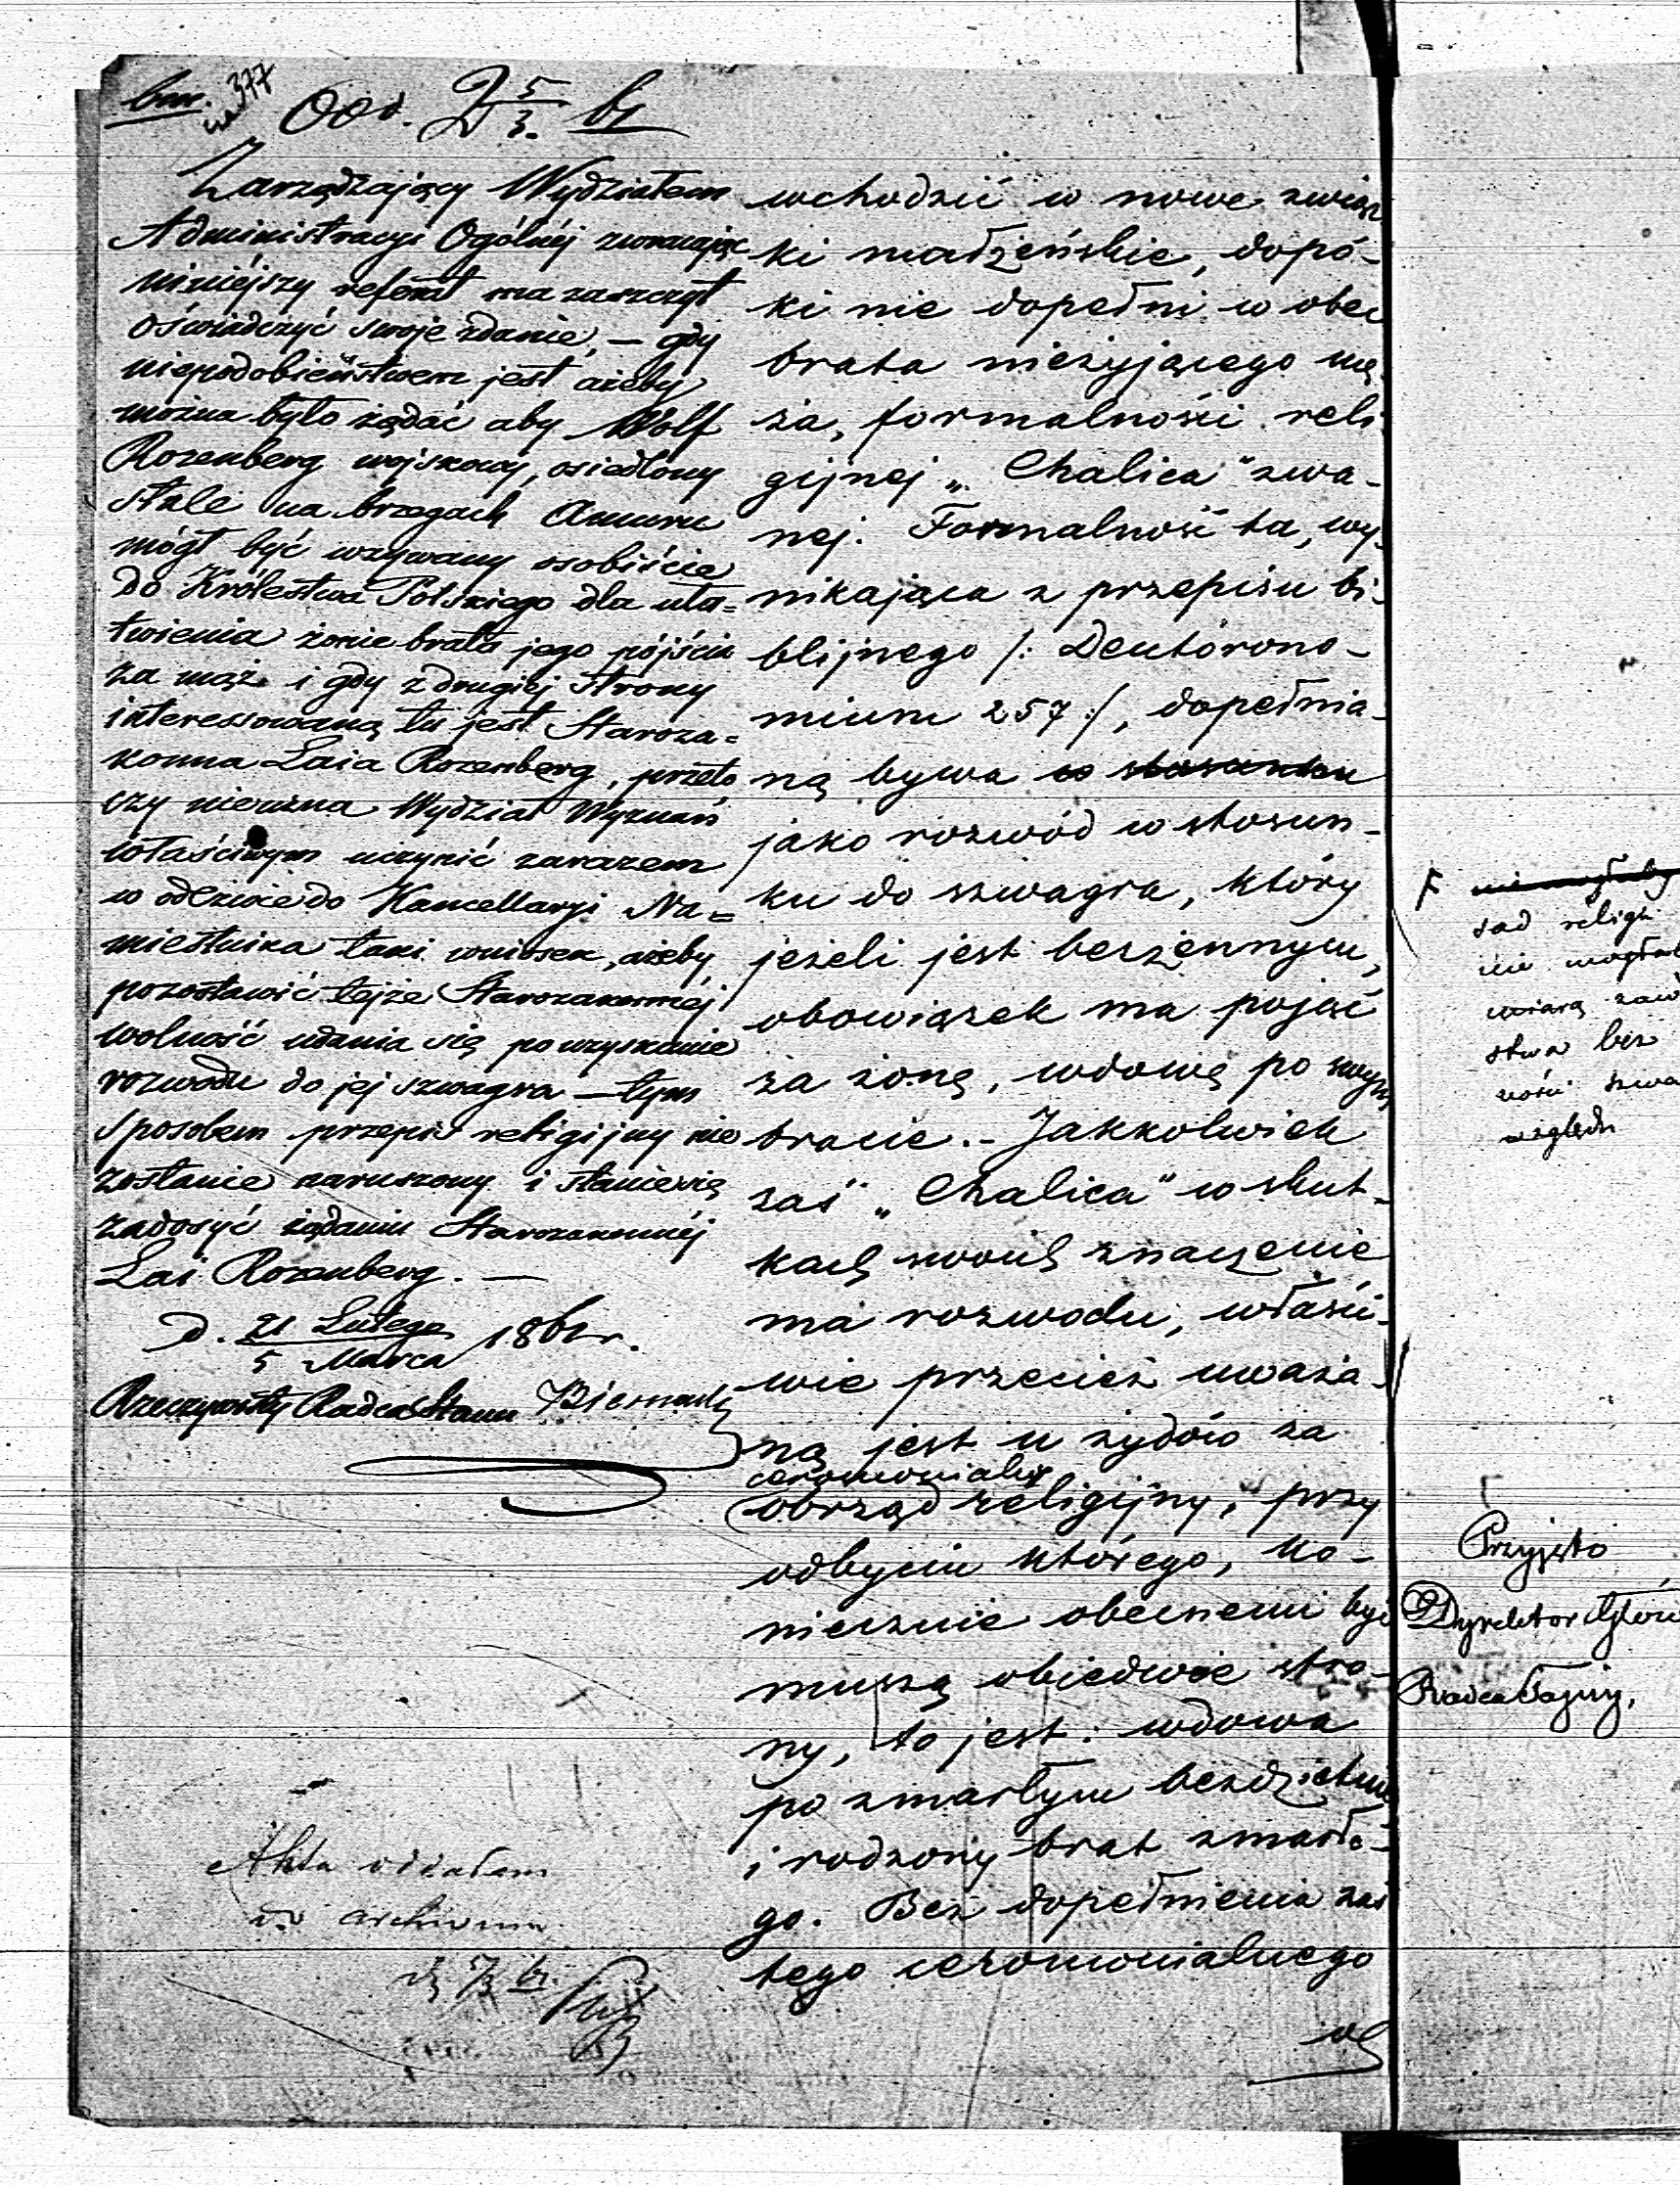 bm.
377
Odd. 5/3. 61
Zarządzający Wydziałem
Administracyi Ogólnéj zwracając
niniéjszy referat ma zaszczyt
oświadczyć swoje zdanie, — gdy
niepodobieństwem jest ażeby
można było żądać aby Wolf
Rozenberg wojskowy, osiedlony
stale na brzegach Amuru
mógł być wzywany osobiście
do Królestwa Polskiego dla uła=
twienia żonie brata jego pójścia
za mąż i gdy z drugiéj strony
interessowaną tu jest Staroza=
konna Laia Rozenberg, przeto
czy nieuzna Wydział Wyznań
właściwym uczynić zarazem
w odezwie do Kancellaryi Na=
miestnika taki wniosek, ażeby
pozostawić tejże Starozakonnéj
wolność udania się po uzyskanie
rozwodu do jej szwagra — tym
sposobem przepis religijny nie
zostanie naruszony i stanie się
zadosyć żądaniu Starozakonnéj
Lai Rozenberg. —
D. 21 Lutego / 5 Marca 1861 r.
Rzeczywisty Radca Stanu Biernacki
Akta oddałem
do archiwum
wchodzić w nowe związ
ki małżeńskie, dopó-
ki nie dopełni w obec
brata nieżyjącego mę
ża, formalności reli
gijnej „Chalica" zwa-
nej. Formalność ta, wy-
nikająca z przepisu bi-
blijnego /: Deutorono-
mium 257 :/, dopełnia-
ną bywa w stosunku
jako rozwód w stosun-
ku do szwagra, który
jeżeli jest bezżennym,
obowiązek ma pojąć
za żonę, wdowę po swym
bracie. – Jakkolwiek
zaś „Chalica" w skut-
kach swoich znaczenie
ma rozwodu, właści-
wie przecież uważa-
ną jest u żydów za
ceremonialny
obrząd religijny, przy
odbyciu którego, ko-
niecznie obecnemi być
muszą obiedwie stro-
ny, to jest: wdowa
po zmarłym bezdzietnie
i rodzony brat zmarłe-
go. Bez dopełnienia zaś
tego ceremonialnego
F nie mogłaby
sad religi
nie mogła
wiarą zaw
stwa bez
ności szwa
względu
Przyjęto
Dyrektor Głów
Radca Tajny,